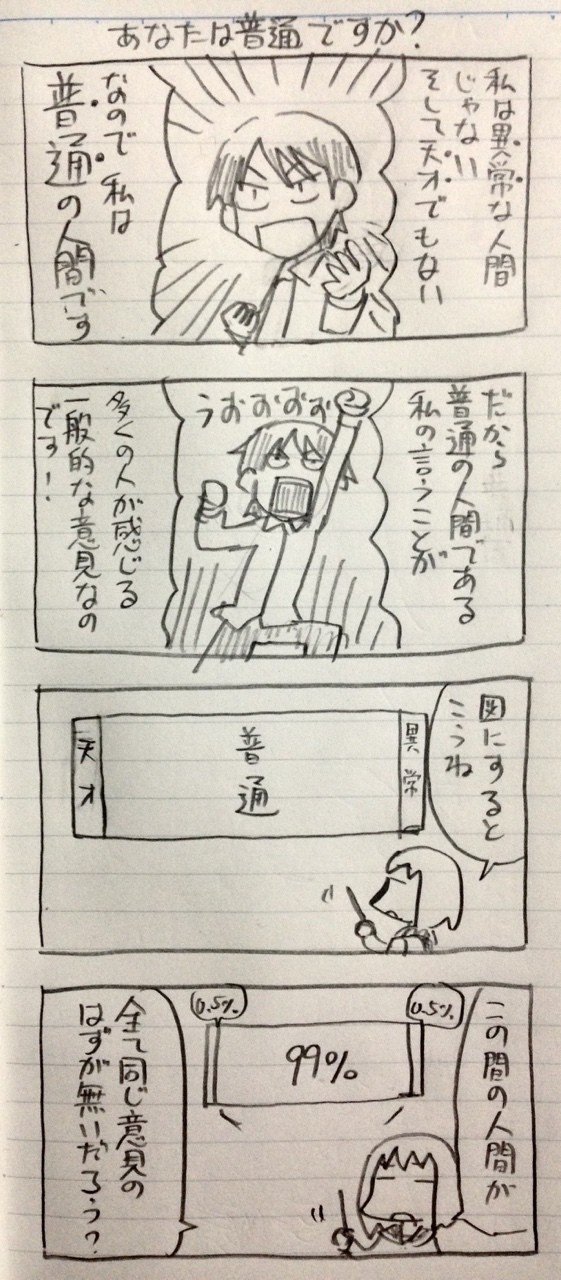 あなたは普通ですか?
私は異常な人間
じゃない
そして天才でもない
なので私は
普通の人間です
だから
普通の人間である
私の言うことが
うおおおお
多くの人が感じる
一般的な意見なの
です!
図にすると
こうね
異常
普通
天才
この間の人間が
0.5%
99%
0.5%
全て同じ意見の
はずが無いだろう?